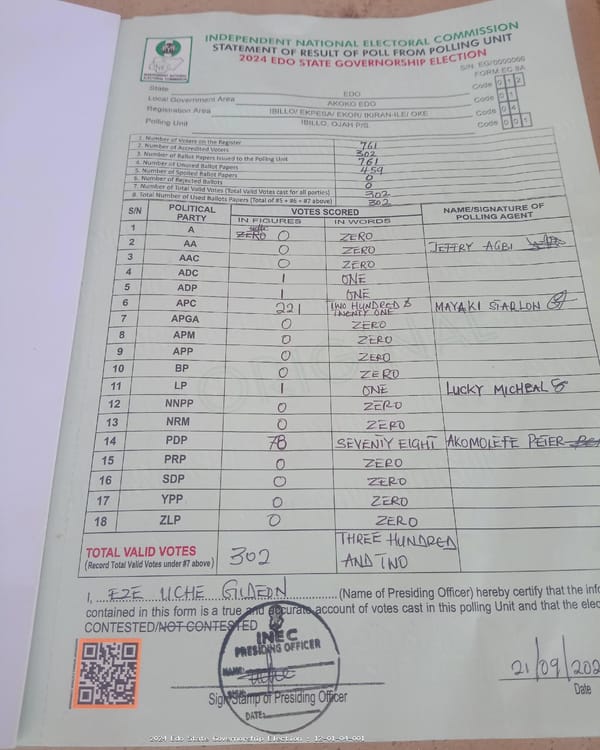 INDEPENDENT NATIONAL ELECTORAL COMMISSION
STATEMENT OF RESULT OF POLL FROM POLLING UNIT
2024 EDO STATE GOVERNORSHIP ELECTION
INDEPENDENT NATIONAL ELECTORAL COMMISSION
S/N EG/0000006
FORM EC 8A
State EDO Code 0 1 2
Local Government Area AKOKO EDO Code 0 1
Registration Area IBILLO/ EKPESA/ EKOR/ IKIRAN-ILE/ OKE Code 0 4
Polling Unit IBILLO, OJAH P/S Code 0 0 1
1. Number of Voters on the Register 761
2. Number of Accredited Voters 302
3. Number of Ballot Papers Issued to the Polling Unit 761
4. Number of Unused Ballot Papers 459
5. Number of Spoiled Ballot Papers 0
6. Number of Rejected Ballots 0
7. Number of Total Valid Votes (Total Valid Votes cast for all parties) 302
8. Total Number of Used Ballots Papers (Total of #5 + #6 + #7 above) 302
S/N POLITICAL PARTY VOTES SCORED NAME/SIGNATURE OF POLLING AGENT
IN FIGURES IN WORDS
1 A ZERO 0 ZERO
2 AA 0 ZERO JEFFRY AGBI
3 AAC 0 ZERO
4 ADC 1 ONE
5 ADP 1 ONE
6 APC 221 TWO HUNDRED & TWENTY ONE MAYAKI STARLON
7 APGA 0 ZERO
8 APM 0 ZERO
9 APP 0 ZERO
10 BP 0 ZERO
11 LP 1 ONE LUCKY MICHEAL
12 NNPP 0 ZERO
13 NRM 0 ZERO
14 PDP 78 SEVENTY EIGHT AKOMOLEFE PETER
15 PRP 0 ZERO
16 SDP 0 ZERO
17 YPP 0 ZERO
18 ZLP 0 ZERO
TOTAL VALID VOTES 302 THREE HUNDRED
(Record Total Valid Votes under #7 above) AND TWO
I, EZE UCHE GIDEON (Name of Presiding Officer) hereby certify that the info
contained in this form is a true and accurate account of votes cast in this polling Unit and that the elec
CONTESTED/NOT CONTESTED
INEC
PRESIDING OFFICER
NAME:
SIGN:
DATE:
21/09/202
Sign/Stamp of Presiding Officer Date
2024 Edo State Governorship Election - 12-01-04-001